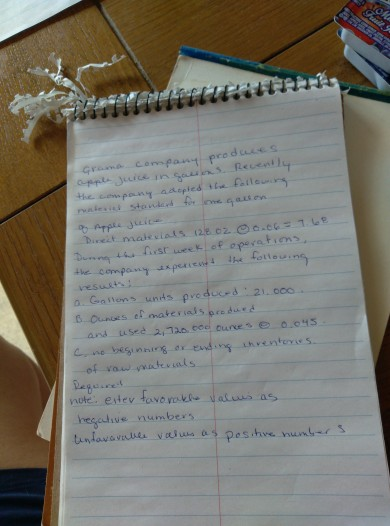 Grama Company produces
apple juice in gallons. Recently
the company adopted the following
material standard for one gallon
of Apple juice
Direct materials 128 oz @ 0.06 = 7.68
During the first week of operations,
the company experienced the following
results:
a. Gallons units produced: 21,000.
B. Ounces of materials
and used 2,720,000 ounces @ 0.045
C. no beginning or ending inventories
of raw materials
Required
note: enter favorable values as
negative numbers
Unfavorable values as positive numbers